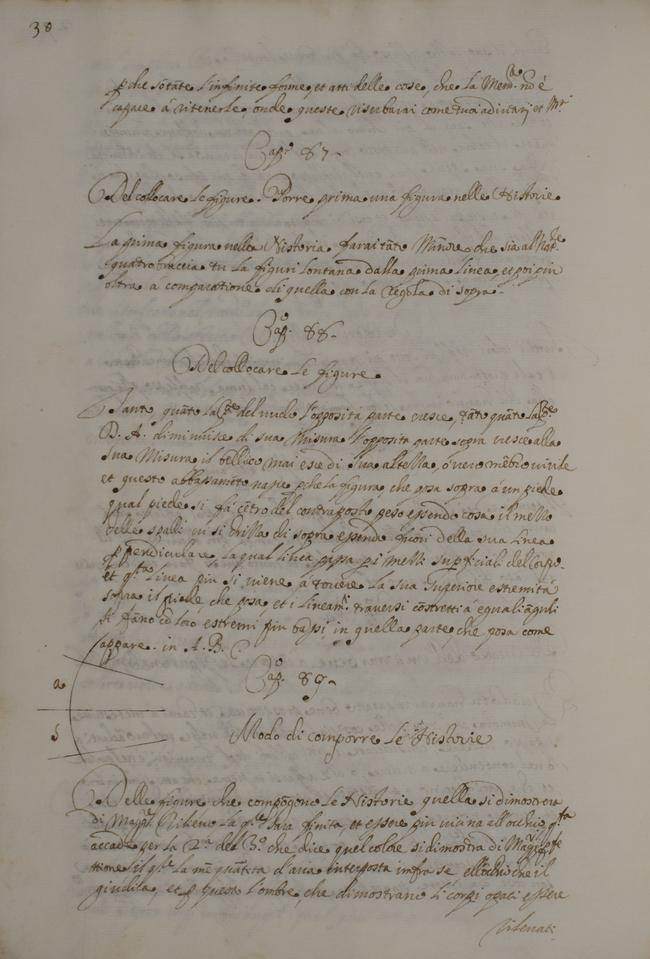 38
p̱che sõ tãte l'infinite forme, et atti delle cose, che la Mem.ª nõ è
capace à ritenerle, onde queste riserbarai come tuoi adiutarj et M.ri
Cap.º 87.
Del collocare le figure. Porre prima una figura nelle Historie
La prima figura nella Historia farai tãto Minore che sia al Nat.le
quatro braccia tu la figuri lontana dalla prima linea, et poi piu
oltra à comparatione di quella con la regola di sopra.
Cap.º 88.
Del collocare le figure
Tanto quãto la
del nudo l'opposita parte cresce, tãto quãto la
D. A. diminuisce di sua misura l'opposita parte sopra cresce alla
sua Misura il bellico mai esce di sua altezza, ò vero mẽbro virile
et questo abbassamẽto nasce p̱che la figura, che posa sopra à un piede
qual piede si fà cẽtro del contraposto peso essendo cosa il mezzo
delle spalli vi si drizza di sopra essendo fuori della sua linea
p̱pendiculare, la qual linea passa pi mezzi sup̱ficiali del Corpo.
et q.sta linea piu si viene à torcere la sua superiore estremità
sopra il piede, che posa et i lineam.ti traversi costretti a eguali ãguli
si fano cõ loro estremi piu bassi in quella parte che posa come
appare in A. B. C
a
b
Cap.º 89.
Modo di comporre le Historie
Delle figure che compõgono le Historie quella si dimostrera
di Magg.r Rilievo la q.le sara finita, et essere piu vicina all'occhio q.sto
accade per la 2.ª del 3.º che dice quel colore si dimostra di
ttione il q.le la
quãtità d'aria interposta infra se e l'occhio che il
giudica, et p̱ questo l'ombre, che dimostrano li corpi opaci essere
rilevati